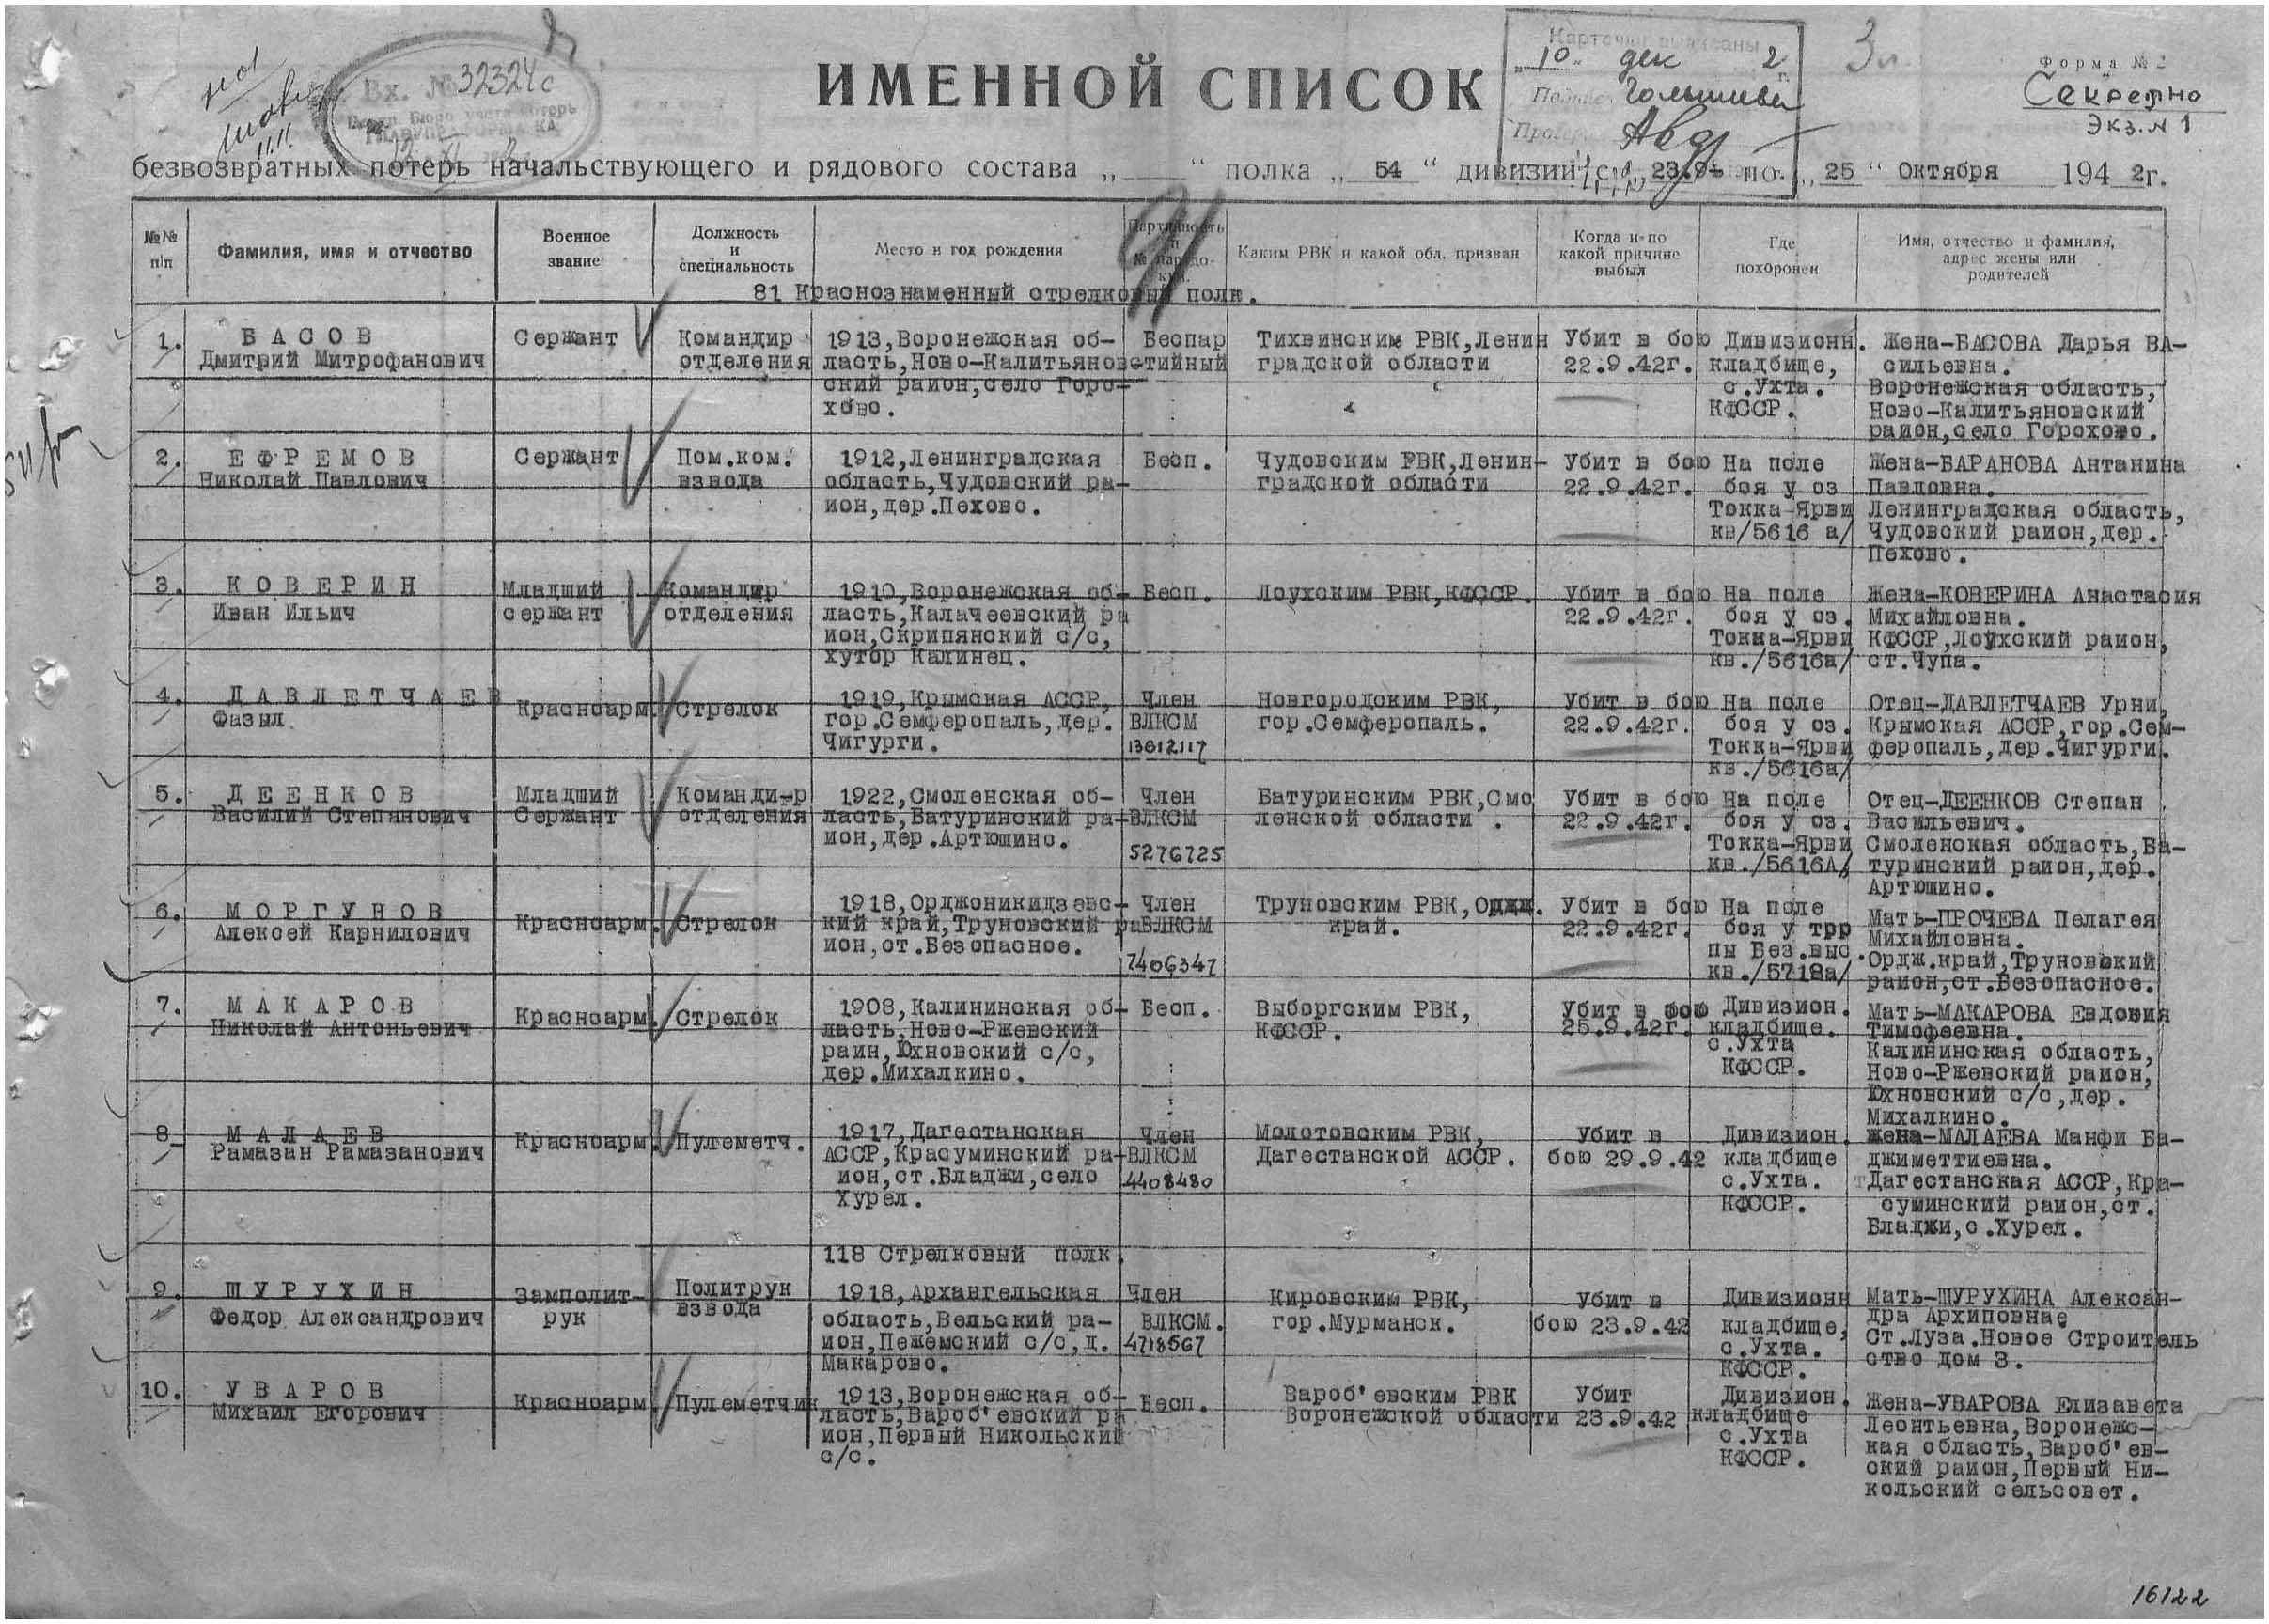 Вх. № 32324с
10 дек 2
3л.
Форма № 2
Секретно
Экз. № 1
ИМЕННОЙ СПИСОК
безвозвратных потерь начальствующего и рядового состава „ “ полка „ 54 “ дивизии с „ 23.9 по „ 25 “ Октября 194 2г.
№№ п/п
Фамилия, имя и отчество
Военное звание
Должность и специальность
Место и год рождения
Каким РВК и какой обл. призван
Когда и по какой причине выбыл
Где похоронен
Имя, отчество и фамилия, адрес жены или родителей
81 Краснознаменный стрелковый полк.
1. БАСОВ Сержант Командир 1913,Воронежская об- Беспар Тихвинским РВК,Ленин Убит в бою Дивизионн. Жена-БАСОВА Дарья ВА-
Дмитрий Митрофанович отделения ласть,Ново-Калитьянов- тийный градской области 22.9.42г. кладбище, сильевна.
ский район,село Горо- с.Ухта. Воронежская область,
хово. КФССР. Ново-Калитьяновский
район,село Горохово.
2. ЕФРЕМОВ Сержант Пом.ком. 1912,Ленинградская Бесп. Чудовским РВК,Ленин- Убит в бою На поле Жена-БАРАНОВА Антанина
Николай Павлович взвода область,Чудовский ра- градской области 22.9.42г. боя у оз Павловна.
ион,дер.Пехово. Токка-Ярви Ленинградская область,
кв/5616 а/ Чудовский раион,дер.
Пехово.
3. КОВЕРИН Младший Командир 1910,Воронежская об- Бесп. Лоухским РВК,КФССР. Убит в бою На поле Жена-КОВЕРИНА Анастасия
Иван Ильич сержант отделения ласть,Калачеевский ра 22.9.42г. боя у оз. Михайловна.
ион,Скрипянский с/с, Токка-Ярви КФССР,Лоухский раион,
хутор Калинец. кв./5616а/ ст.Чупа.
4. ДАВЛЕТЧАЕВ Красноарм. Стрелок 1919,Крымская АССР, Член Новгородским РВК, Убит в бою На поле Отец-ДАВЛЕТЧАЕВ Урни,
Фазыл гор.Семферопаль,дер. ВЛКСМ гор.Семферопаль. 22.9.42г. боя у оз. Крымская АССР,гор.Сем-
Чигурги. 13012117 Токка-Ярви феропаль,дер.Чигурги.
кв./5616а/
5. ДЕЕНКОВ Младший Команди-р 1922,Смоленская об- Член Батуринским РВК,Смо Убит в бою На поле Отец-ДЕЕНКОВ Степан
Василий Степанович Сержант отделения ласть,Батуринский ра- ВЛКСМ ленской области . 22.9.42г. боя у оз. Васильевич.
ион,дер.Артюшино. 5276725 Токка-Ярви Смоленская область,Ба-
кв./5616А/ туринский раион,дер.
Артюшино.
6. МОРГУНОВ Красноарм. Стрелок 1918,Орджоникидзевс- Член Труновским РВК,Ордж. Убит в бою На поле Мать-ПРОЧЕВА Пелагея
Алексей Карнилович кий край,Труновский ра ВЛКСМ край. 22.9.42г. боя у трр Михайловна.
ион,ст.Безопасное. 7406347 пы Без.выс. Ордж.край,Труновский
кв./5718а/ район,ст.Безопасное.
7. МАКАРОВ Красноарм. Стрелок 1908,Калининская об- Бесп. Выборгским РВК, Убит в бою Дивизион. Мать-МАКАРОВА Евдокия
Николай Антоньевич ласть,Ново-Ржевский КФССР. 25.9.42г. кладбище. Тимофеевна.
раин,Юхновский с/с, с.Ухта Калининская область,
дер.Михалкино. КФССР. Ново-Ржевский раион,
Юхновский с/с,дер.
Михалкино.
8 МАЛАЕВ Красноарм. Пулеметч. 1917,Дагестанская Член Молотовским РВК, Убит в Дивизион. Жена-МАЛАЕВА Манфи Ба-
Рамазан Рамазанович АССР,Красуминский ра- ВЛКСМ Дагестанской АССР. бою 29.9.42 кладбище джиметтиевна.
ион,ст.Бладжи,село 4408480 с.Ухта. Дагестанская АССР,Кра-
Хурел. КФССР. суминский раион,ст.
Бладжи,с.Хурел.
118 Стрелковый полк.
9. ШУРУХИН Замполит- Политрук 1918,Архангельская Член Кировским РВК, Убит в Дивизионн Мать-ШУРУХИНА Алексан-
Федор Александрович рук взвода область,Вельский ра- ВЛКСМ. гор.Мурманск. бою 23.9.42 кладбище, дра Архиповнае
ион,Пежемский с/с,д. 4718567 с.Ухта. Ст.Луза.Новое Строитель
Макарово. КФССР. ство дом 3.
10. УВАРОВ Красноарм. Пулеметчик 1913,Воронежская об- Бесп. Вароб'евским РВК Убит Дивизион. Жена-УВАРОВА Елизавета
Михаил Егорович ласть,Вароб'евский ра Воронежской области 23.9.42 кладбище Леонтьевна,Воронежс-
ион,Первый Никольский с.Ухта кая область,Вароб'ев-
с/с. КФССР. ский раион,Первый Ни-
кольский сельсовет.
16122